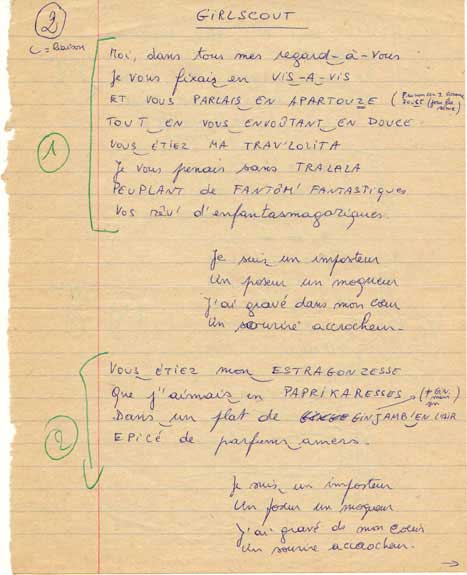 2
GIRLSCOUT
= liaison
1
Moi, dans tous mes regard-à-vous
Je vous fixais en VIS-A-VIS
ET VOUS PARLAIS EN APARTOUZE
(pour la rime)
TOUT EN VOUS ENVOÛTANT EN DOUCE
VOUS ÉTIEZ MA TRAV'LOLITA
Je vous prenais sans TRALALA
PEUPLANT de FANTÔM' FANTASTIQUES
VOS RÊV' d'enfantasmagoriques.
Je suis un imposteur
Un poseur un moqueur
J'ai gravé dans mon cœur
Un sourire accrocheur.
2
VOUS ÉTIEZ mon ESTRAGONZESSE
Que j'aimais en PAPRIKARESSES
Dans un plat de GINJAMB'EN L'AIR
EPICÉ de parfums amers.
Je suis un imposteur
Un poseur un moqueur
J'ai gravé de mon cœur
Un sourire accrocheur.
→